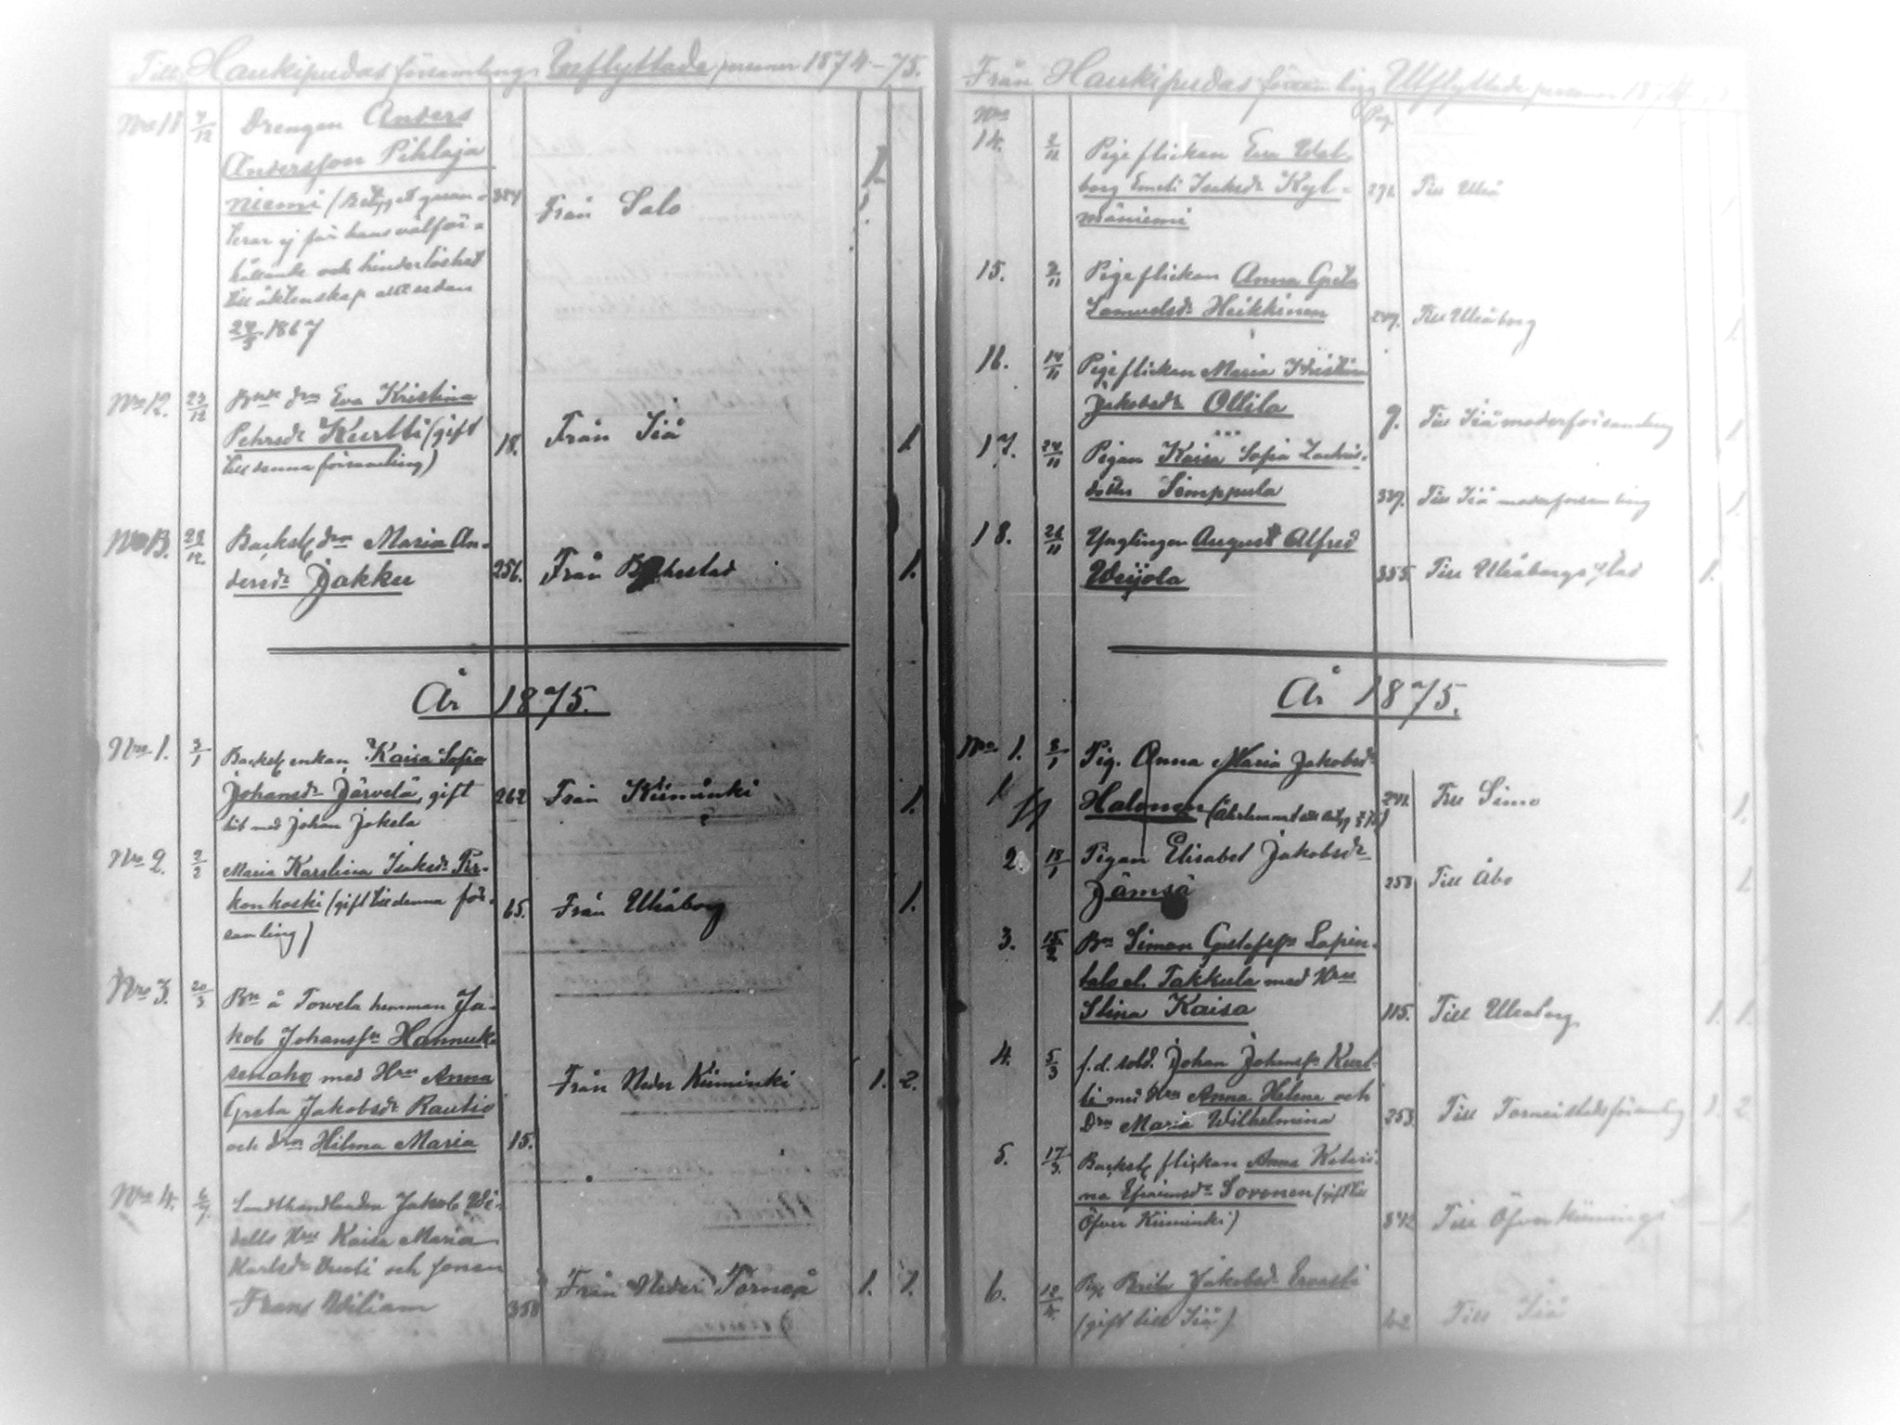 Till Haukipudas församlings Inflyttade personer 1874-75.
Nro 11 7/12 Drengen Anders
Andersson Pihlaja
niemi (Betyget garan-
terar ej för hans välför-
hållande och hinderlöshet
till äktenskap allt sedan
24/3 1867
384 Från Salo 1.
Nro 12. 23/12 Dron Eva Kristina
Pehrsdr Kurtti (gift
till denna församling)
18. Från Iiå 1
Nro 13. 28/12 Backst. dron Maria An-
dersdr Jakku
256. Från Brahestad 1.
År 1875.
Nro 1. 3/1 Backst. enkan Kaisa Sofia
Johansdr Järvelä, gift
hit med Johan Jokela
262 Från Kiiminki 1.
Nro 2. 2/2 Maria Karolina Isaksdr Pir-
konkoski (gift till denna för-
samling)
65. Från Uleåborg 1.
Nro 3. 20/3 Bn å Torvela hemman Ja-
kob Johansson Hannuk-
senaho med Hru Anna
Greta Jakobsdr Rautio
och dron Hilma Maria
15. Från Neder Kiiminki 1. 2.
Nro 4. 6/7. Landthandlanden Jakob Wi-
dells Hru Kaisa Maria
Karlsdr och sonen
Frans Wiliam
358 Från Neder Torneå 1. 1.
Från Haukipudas församling Utflyttade personer 1874
Nro Pag.
14. 2/11 Pigeflickan Eva Wal-
borg Emeli Isaksdr Kyl-
mäniemi
Till Uleå
15. 2/11 Pigeflickan Anna Greta
Samuelsdr Heikkinen
249. Till Uleåborg 1.
16. 14/11 Pigeflickan Maria Kristina
Jakobsdr Ollila
9. Till Iiå moderförsamling 1
17. 24/11 Pigan Kaisa Sofia Zachris-
dotter Simppula
339. Till Iiå moderförsamling 1.
18. 26/11 Ynglingen August Alfred
Weijola
355. Till Uleåborgs stad 1.
År 1875.
Nro 1. 8/1 Pig. Anna Maria Jakobsdr
Halonen
241. Till Simo 1.
2. 18/1 Pigan Elisabet Jakobsdr
Jämsä
258 Till Åbo 1
3. 15/2 Bn Simon Gustafsson Lapin-
talo el. Takkula med Hru
Stina Kaisa
115. Till Uleåborg 1. 1.
4. 5/3 f.d. sold. Johan Johansson Kurt-
ti med Hru Anna Helena och
Dron Maria Wilhelmina
253. Till Torneå stadsförsamling 1. 2
5. 17/3. Backst. flickan Anna Katari-
na Efraimsdr Soronen (gift till
Öfver Kiiminki)
342 Till Öfverkiiminki – 1.
6. 12/4. Brita Jakobsdr
(gift till Iiå)
62 Till Iiå